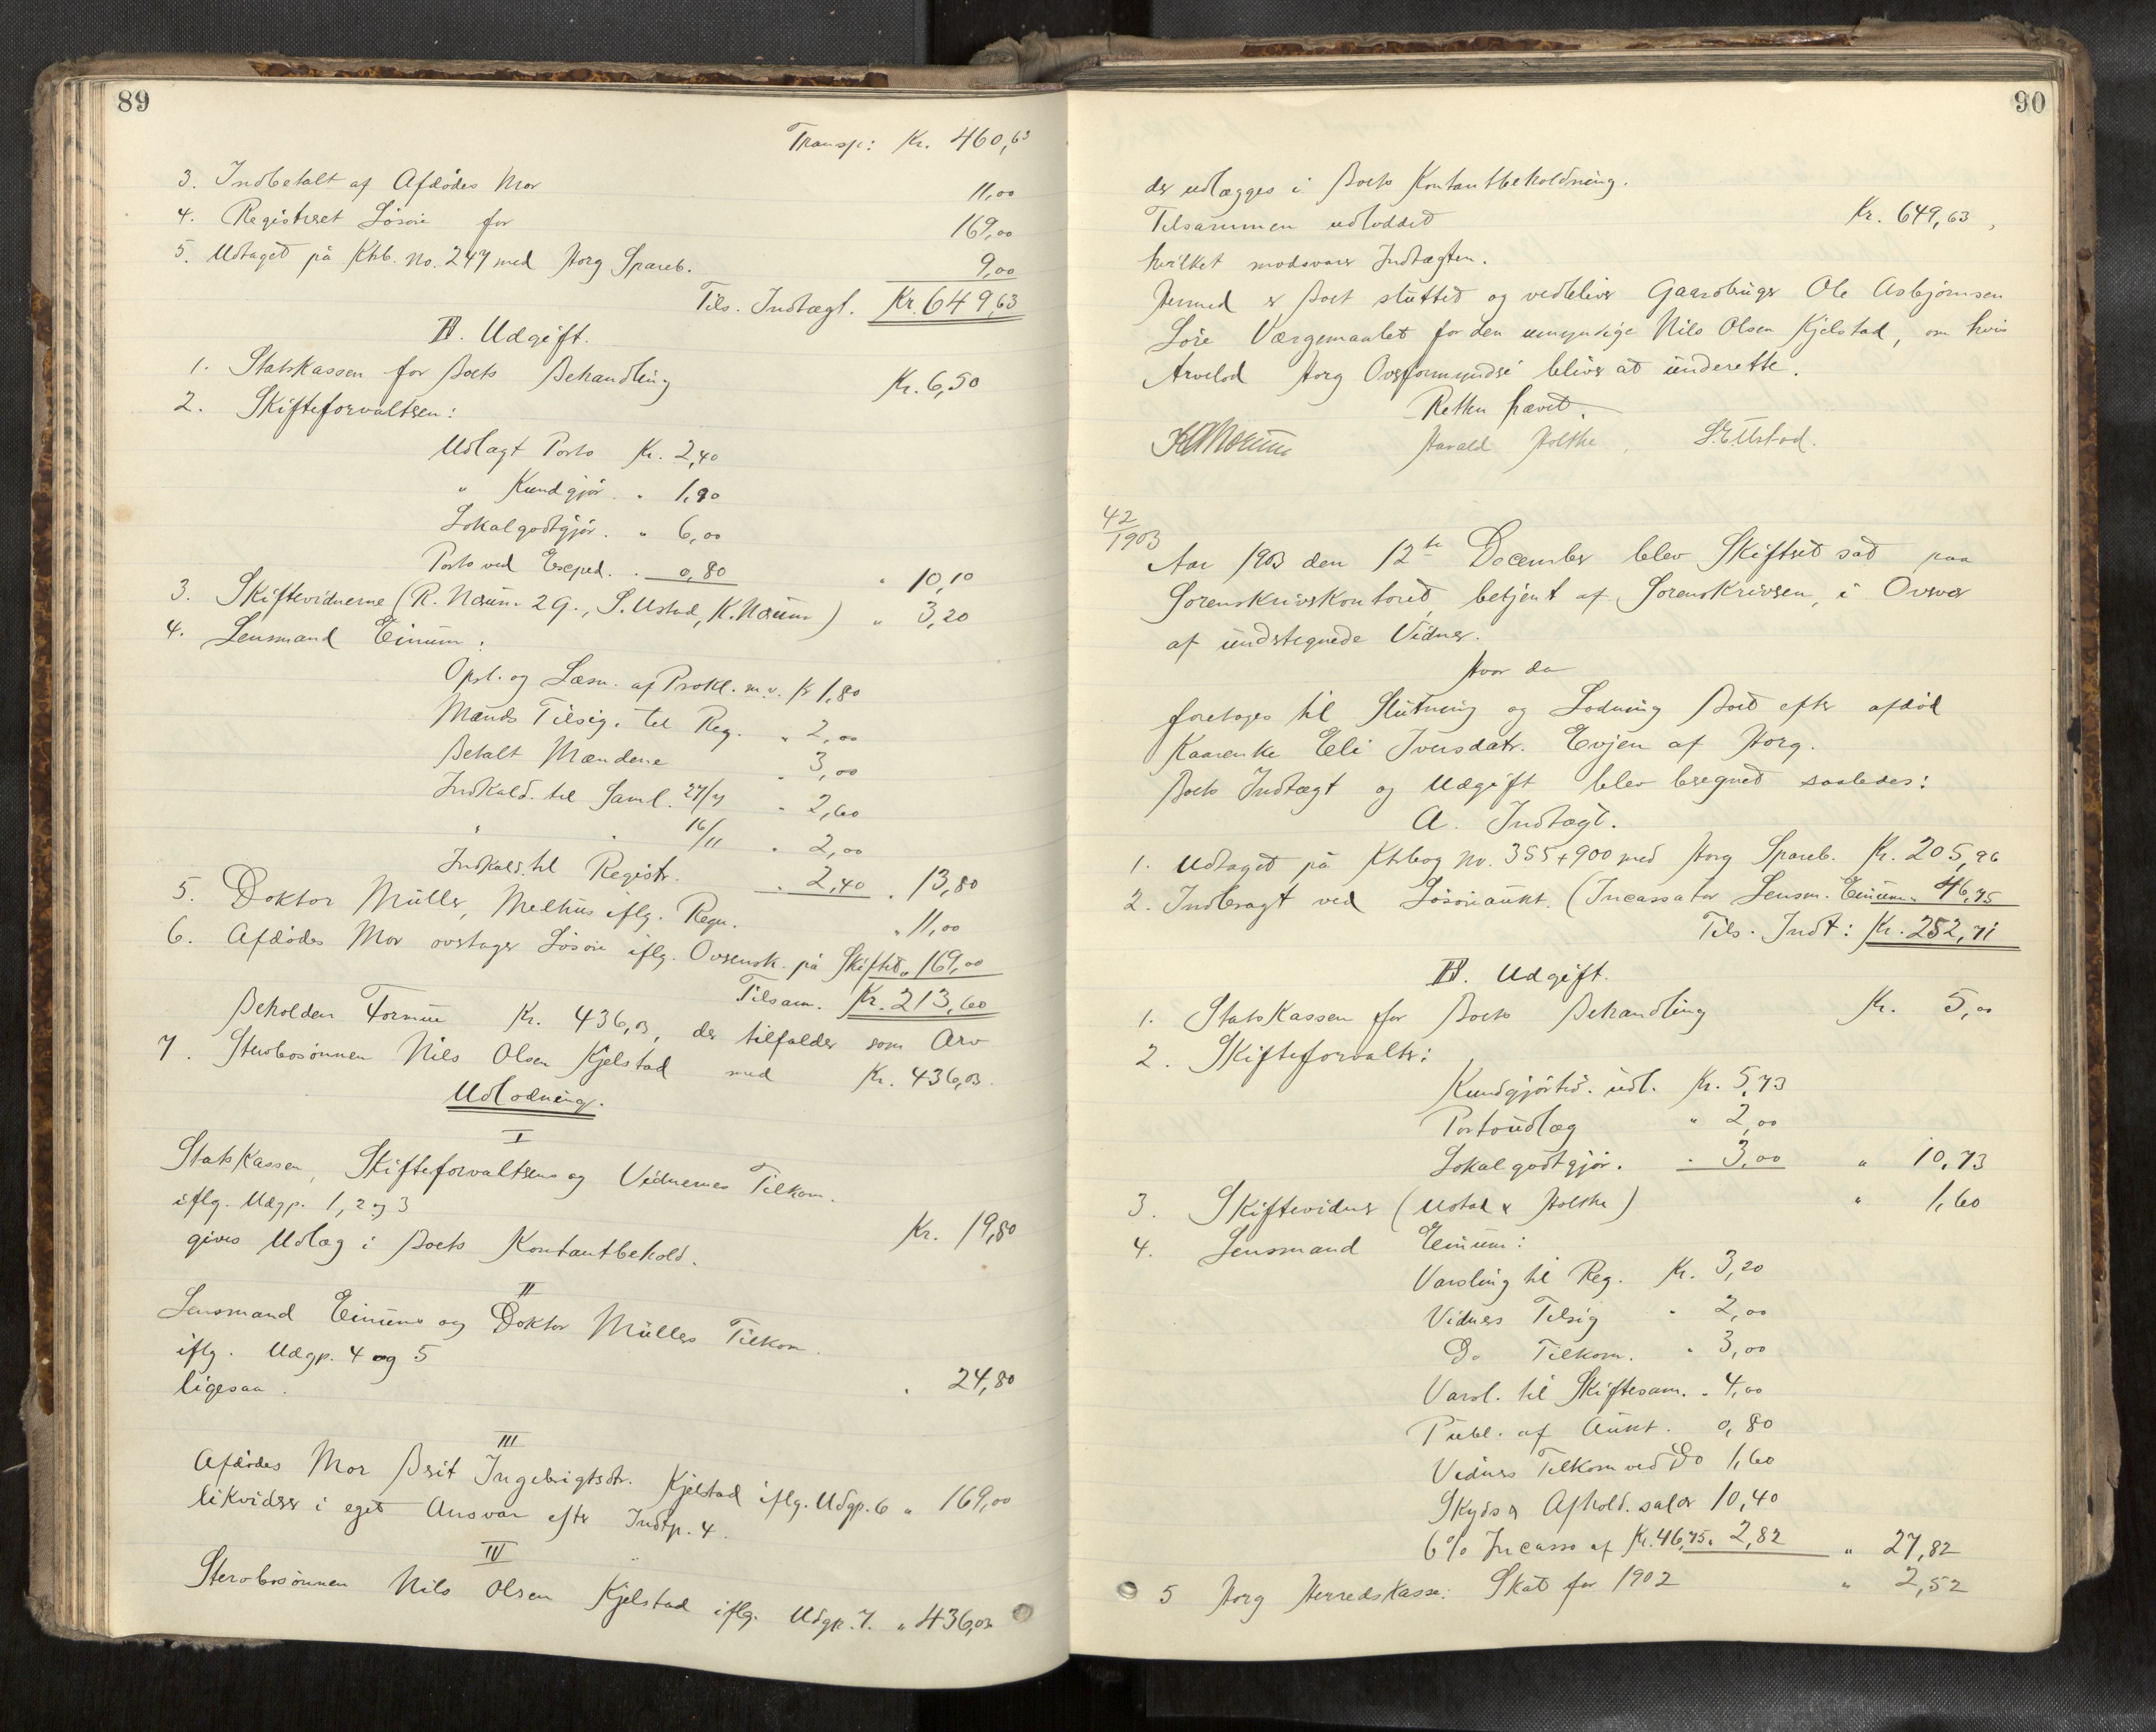 89
Transp: Kr. 460,63
3. Indbetalt af Afdödes Mor 11,00
4. Registreret Lösöre for 169,00
5. Udtaget på Ktrb. No. 247 med Horg Spareb. 9,00
Tils. Indtægt. Kr 649,63
B. Udgift.
1. Statskassen for Boets Behandling Kr. 6,50
2. Skifteforvalteren:
Udlagt Porto Kr. 2,40
" Kundgjör. " 1,90
Lokalgodtgjör. " 6,00
Porto ved Exped. " 0,80 " 10,10
3. Skiftevidnerne (R. Næum 2 g., S. Ustad, K. Næum) " 3,20
4. Lensmand Einum:
Opsl. og Læsn. af Prokl. m.v. Kr 1,80
Mænds Tilsig. til Reg. " 2,00
Betalt Mændene " 3,00
Indkald. til Saml. 27/7 " 2,60
" " 16/11 " 2,00
Indkald. til Registr. " 2,40 " 13,80
5. Doktor Müller, Melhus iflg. Regn. " 11,00
6. Afdödes Mor overtager Lösöre iflg. Overensk. på Skiftet " 169,00
Tilsam. Kr. 213,60
Beholden Formue Kr. 436,03, der tilfalder som Arv
7. Stervbosönnen Nils Olsen Kjelstad med Kr. 436,03.
Udlodning.
I
Statskassen, Skifteforvalterens og Vidnernes Tilkom.
iflg. Udgp. 1, 2 og 3 Kr. 19,80
gives Udlæg i Boets Kontantbehold.
II
Lensmand Einums og Doktor Müllers Tilkom.
iflg. Udgp. 4 og 5 " 24,80
ligesaa.
III
Afdödes Mor Brit Ingebrigtsdtr. Kjelstad iflg. Udgp. 6 " 169,00
likviderer i eget Ansvar efter Indtp. 4.
IV
Stervbosönnen Nils Olsen Kjelstad iflg. Udgp. 7. " 436,03
90
der udlægges i Boets Kontantbeholdning.
Tilsammen udloddet Kr. 649,63,
hvilket modsvarer Indtægten.
Hermed er Boet sluttet og vedbliver Gaardbruger Ole Asbjörnsen
Löre Værgemaalet for den umyndige Nils Olsen Kjelstad, om hvis
Arvelod Horg Overformynderi bliver at underrette.
Retten hævet.
Harald Holthe, S. E. Ustad.
42/1903
Aar 1903 den 12te December blev Skifteret sat paa
Sorenskriverkontoret, betjent af Sorenskriveren, i Overvær
af undertegnede Vidner.
Hvor da
foretoges til Slutning og Lodning Boet efter afdöd
Kaarenke Eli Iversdatr. Evjen af Horg.
Boets Indtægt og Udgift blev beregnet saaledes:
A. Indtægt.
1. Udtaget på Ktrbog No. 355 + 900 med Horg Spareb. Kr. 205,96
2. Indbragt ved Lösöreaukt. (Incassator Lensm. Einum " 46,75
Tils. Indt: Kr. 252,71
B. Udgift.
1. Statskassen for Boets Behandling Kr. 5,00
2. Skifteforvalter:
Kundgjörelses. udl. Kr. 5,73
Portoudlæg " 2,00
Lokalgodtgjör. " 3,00 " 10,73
3. Skiftevidner (Ustad & Holthe) " 1,60
4. Lensmand Einum:
Varsling til Reg. Kr. 3,20
Vidners Tilsig " 2,00
Do Tilkom. " 3,00
Varsl. til Skiftesam. " 4,00
Publ. af Aukt. 0,80
Vidners Tilkom ved Do 1,60
Skyds & Afhold. salær 10,40
6% Incasso af Kr. 46,75 " 2,82 " 27,82
5 Horg Herredskasse: Skat for 1902 " 2,52